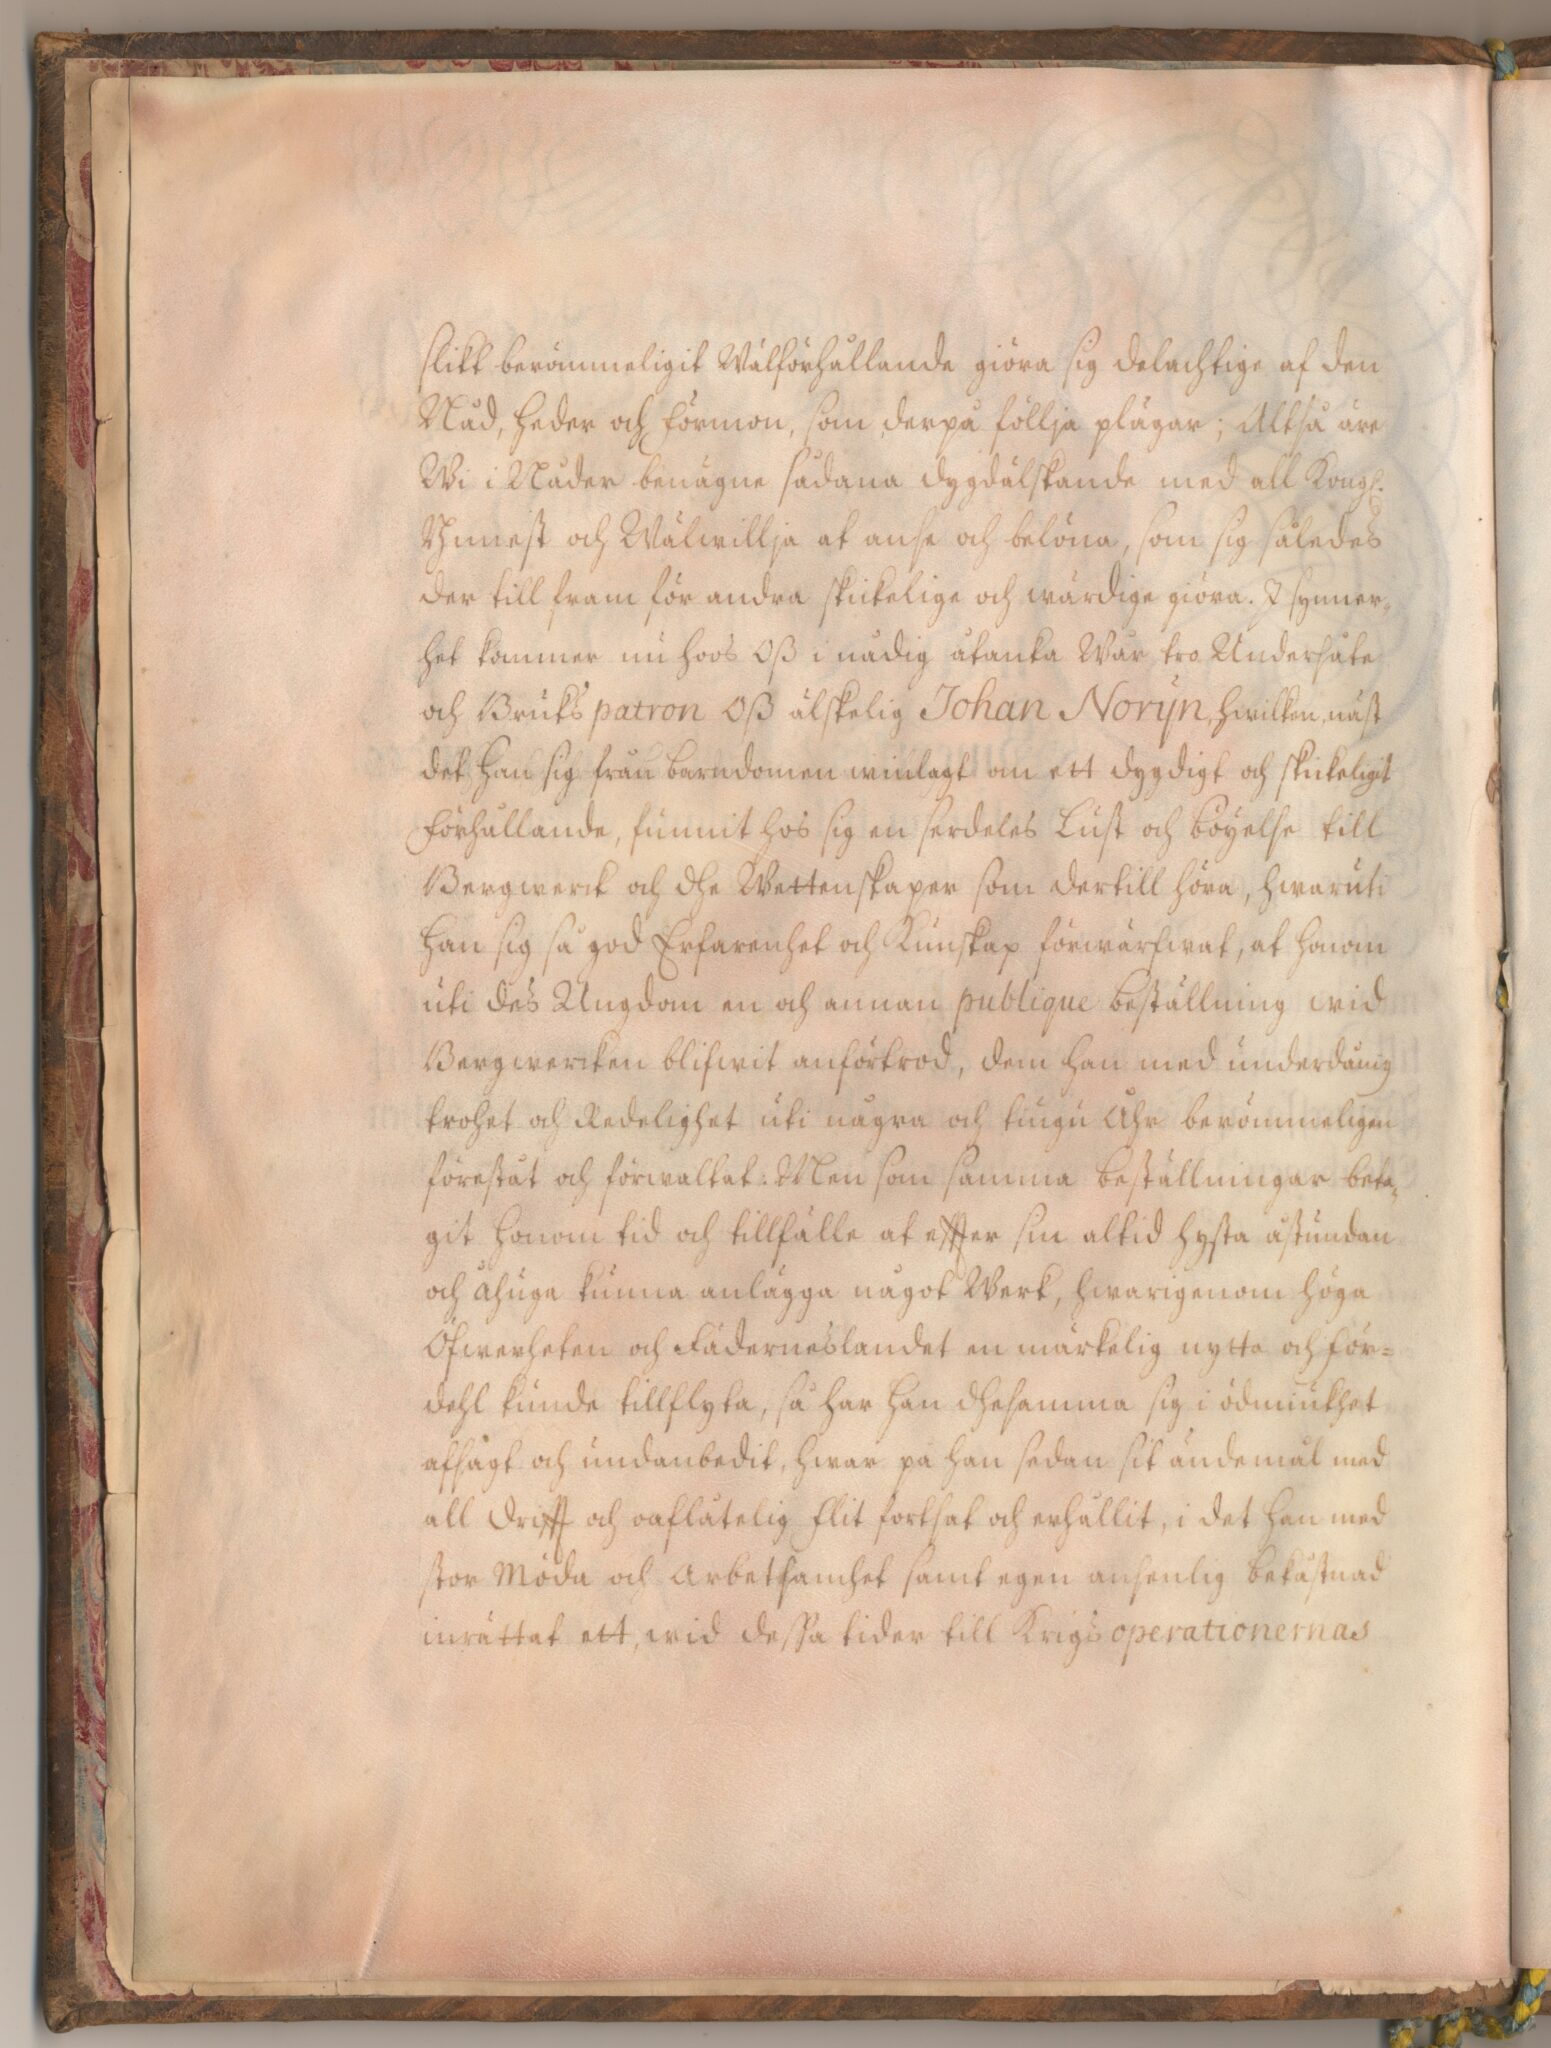 slikt berömmeligit Wälförhållande giöra sig delachtige af den
Nåd, heder och förmon, som derpå föllja plägar; Altså äre
Wi i Nåder benägne sådana dygdälskande med all Kongl.
Ynnest och Wälwillja at anse och belöna, som sig således
der till fram för andra skickelige och wärdige giöra. I synner-
het kommer nu hoos Oß i nådig åtanka Wår tro Undersåte
och Bruks patron Oß älskelig Johan Norijn, hwilken, näst
det han sig från barndomen winlagt om ett dygdigt och skickeligit
förhållande, funnit hos sig en serdeles Lust och böyelse till
Bergwerck och dhe Wettenskaper som dertill höra, hwaruti
han sig så god Erfarenhet och Kunskap förwärfwat, at honom
uti des Ungdom en och annan publique beställning wid
Bergwercken blifwit anförtrod, dem han med underdånig
trohet och Redelighet uti några och tiugu Åhr berömmeligen
förestått och förwaltat: Men som samma beställningar beta-
git honom tid och tillfälle at effter sin altid hysta åstundan
och åhuga kunna anlägga något Werk, hwarigenom höga
Öfwerheten och Fäderneslandet en märkelig nytta och för-
dehl kunde tillflyta, så har han dhesamma sig i ödmiukhet
afsagt och undanbedit, hwar på han sedan sit ändemål med
all drifft och oaflåtelig flit fortsat och erhållit, i det han med
stor Möda och Arbetsamhet samt egen ansenlig bekåstnad
inrättat ett, wid dessa tider till Krigs operationernas